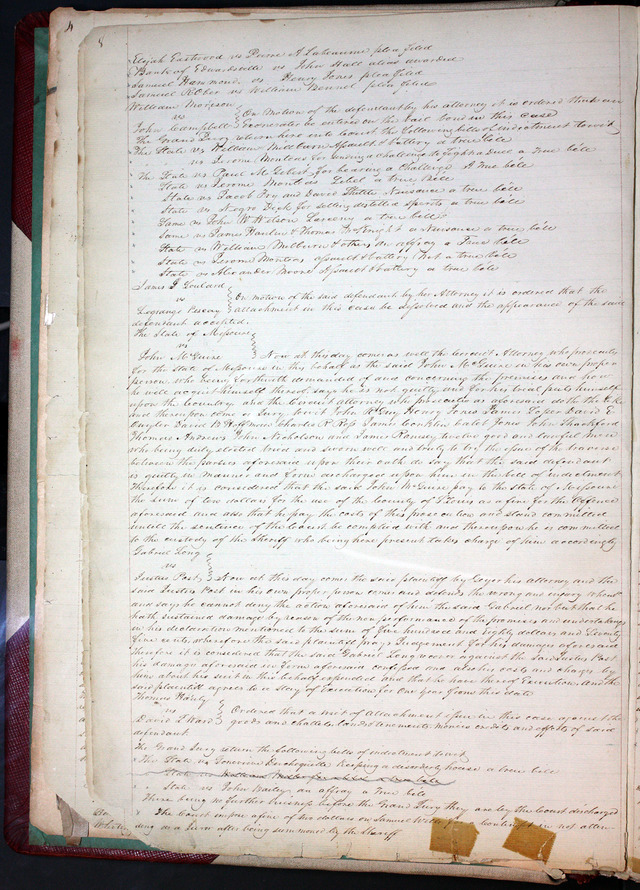 4
8
Elijah Eastwood vs Pierre A Labeaume plea filed
Bank of Edwardsville vs John Hall alias awarded
Samuel Hammond vs Henry Jones plea filed
Samuel R Ober vs William plea filed
William Morrison
vs
John Campbell } On Motion of the defendant by his attorney it is ordered that an
Exonerate be entered on the bail bond in this case
The Grand Jury return here into Court the following bills of indictment to wit,
The State vs William Milburn Assault & battery a true bill
vs Jerome Montous for sending a Challenge to fight a Duel a True bill
The State vs Paul M Gebert for bearing a Challenge A True bill
State vs Jerome Montous Libel a true bill
State vs Jacob Fry and David Nuisance a true bill
State vs Negro Dick for selling distilled spirits a true bill
Same vs John W Wilson Larceny a true bill
Same vs & Thomas a Nuisance a true bill
State vs William Milburn & others an affray a True bill
State vs Jerome Montous assault & battery Not a true bill
State vs Alexander Moore Assault & battery a true bill
James J Goulard
vs
} On motion of the said defendant by her Attorney it is ordered that the
attachment in this case be dissolved and the appearance of the said
defendant accepted.
The State of Missouri
vs
John McGuire } Now at this day comes as well the Circuit Attorney who prosecutes
for the State of Missouri in this behalf as the said John McGuire in his own proper
person who being forthwith demanded of and concerning the premises and how
he will acquit himself thereof says he is not guilty and for his trial puts himself
upon the Country and the Circuit attorney who prosecutes as aforesaid doth the like
and thereupon come a Jury towit John Henry Jones James Loper David E
Cuyler David B Hoffman Charles R Ross James Conklin Caleb Jones John Shackford
Thomas Andrews John Nicholson and James Ramsey twelve good and lawful men
who being duly elected tried and sworn well and truly to try the issue of the traverse
between the parties aforesaid upon their oath do say that the said defendant
is guilty in manner and form as charged upon him in the bill of indictment
Therefore it is considered that the said John McGuire pay to the State of Missouri
the sum of ten dollars for the use of the County of St Louis as a fine for the offence
aforesaid and also that he pay the costs of this prosecution and stand committed
untill the sentence of the Court be complied with and thereupon he is committed
to the custody of the Sheriff who being here present takes charge of him accordingly
Gabriel Long
vs
Justus Post } Now at this day comes the said plaintiff by Geyer his attorney and the
said Justus Post in his own proper person comes and defends the wrong and injury when &c
and says he cannot deny the action aforesaid of him the said Gabriel nor but that he
hath sustained damage by reason of the nonperformance of the promises and undertakings
in his declaration mentioned to the sum of five hundred and eighty dollars and Seventy
five cents, wherefore the said plaintiff prays Judgement for his damages aforesaid
Therefore it is considered that the said Gabriel Long recover against the said Justus Post
his damages aforesaid in form aforesaid confessed and also his costs and charges by
him about his suit in this behalf expended and that he have thereof Execution, and the
said plaintiff agrees to a stay of Execution for One Year from this date
Thomas
vs
David L Ward } Ordered that a writ of attachment issue in this case against the
goods and chattels lands tenements monies credits and effects of said
defendant
The Grand Jury return the following bills of indictment towit
The State vs keeping a disorderly house a true bill
State vs William a true bill
State vs John Bailey an affray a True bill
There being no further business before the Grand Jury they are by the Court discharged
The Court impose a fine of ten dollars on Samuel for a contempt in not atten-
ding as a Juror after being summoned by the Sheriff